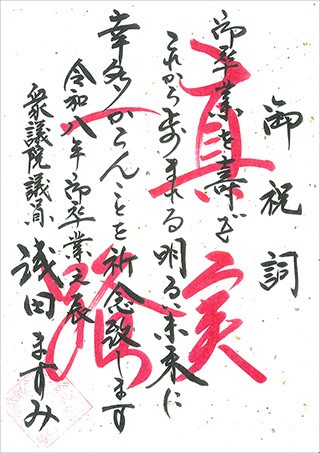 御祝詞
御卒業を寿ぎ
これから歩まれる明るい未来に
幸多からんことを祈念致します
令和八年御卒業之辰
衆議院議員 浅田ますみ
真実
一路